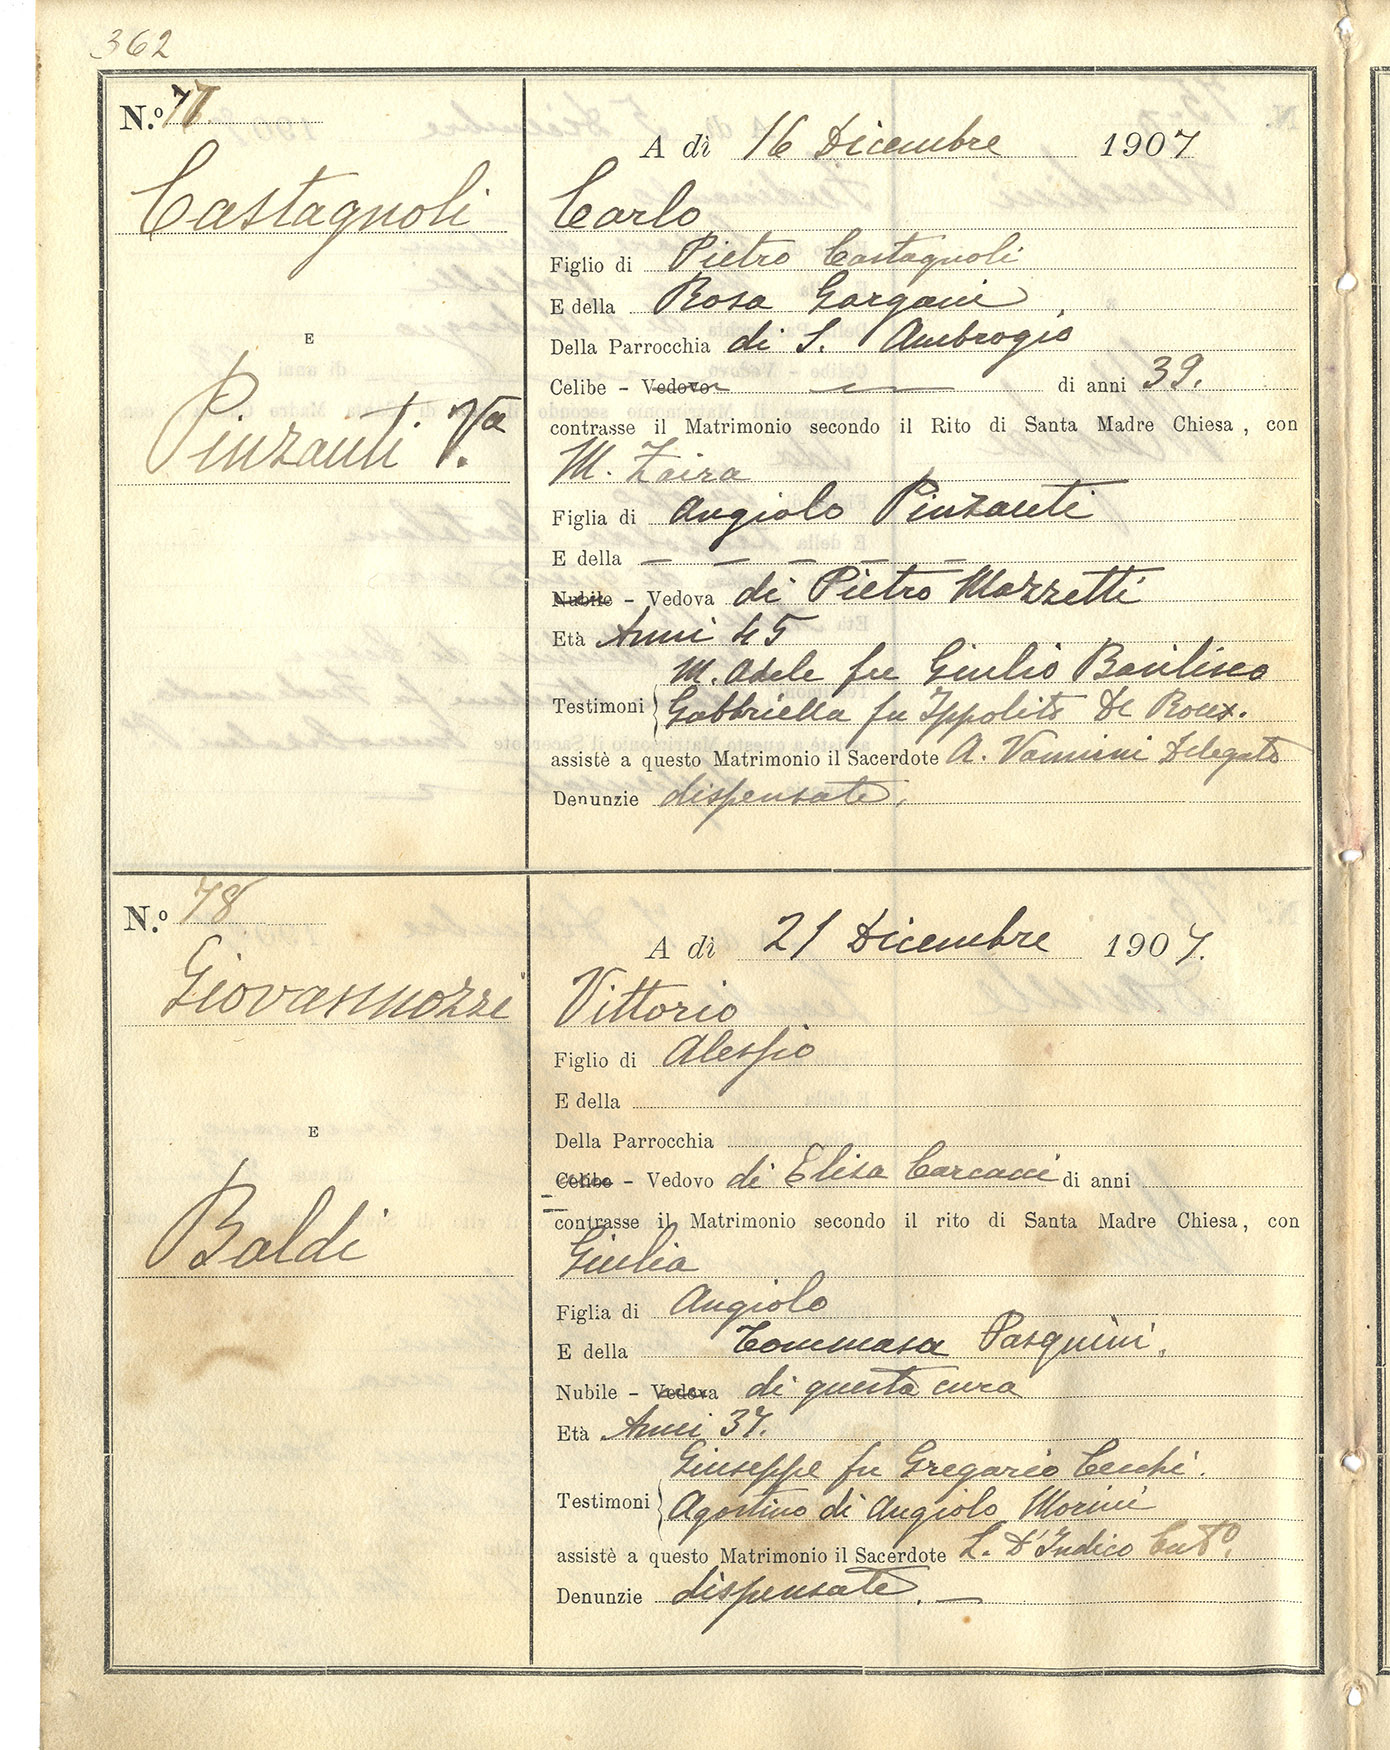 362
N.º 77
A dì 16 Dicembre 1907
Castagnoli
Carlo
Figlio di Pietro Castagnoli
E della Rosa Gargani
E
Della Parrocchia di S. Ambrogio
Celibe - Vedovo — di anni 39.
contrasse il Matrimonio secondo il Rito di Santa Madre Chiesa, con
Pinzauti Va.
M. Zaira
Figlia di Angiolo Pinzauti
E della — — — — — —
Nubile - Vedova di Pietro Mazzetti
Età Anni 45
M. Adele fu Giulio Basilisco
Testimoni Gabbriella fu Ippolito De Roux.
assistè a questo Matrimonio il Sacerdote A. Vannini Delegato
Denunzie dispensate.
N.º 78
A dì 21 Dicembre 1907.
Giovannozzi
Vittorio
Figlio di Alessio
E della
E
Della Parrocchia
Celibe - Vedovo di Elisa Carcacci di anni
contrasse il Matrimonio secondo il rito di Santa Madre Chiesa, con
Baldi
Giulia
Figlia di Angiolo
E della Tommasa Pasquini.
Nubile - Vedova di questa cura
Età Anni 37.
Giuseppe fu Gregorio Cecchi.
Testimoni Agostino di Angiolo Morini
assistè a questo Matrimonio il Sacerdote L. D'Indico Cato.
Denunzie dispensate. —